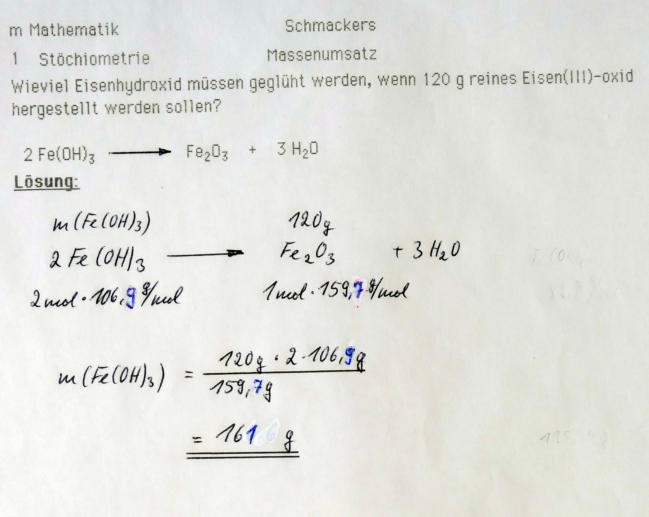 m Mathematik Schmackers
1 Stöchiometrie Massenumsatz
Wieviel Eisenhydroxid müssen geglüht werden, wenn 120 g reines Eisen(III)-oxid
hergestellt werden sollen?
2 Fe(OH)₃ ⟶ Fe₂O₃ + 3 H₂O
Lösung:
m(Fe(OH)₃) 120g
2 Fe(OH)₃ ⟶ Fe₂O₃ + 3 H₂O
2mol · 106,9 g/mol 1mol · 159,7 g/mol
120g · 2 · 106,9g
m(Fe(OH)₃) =
159,7g
= 161 g